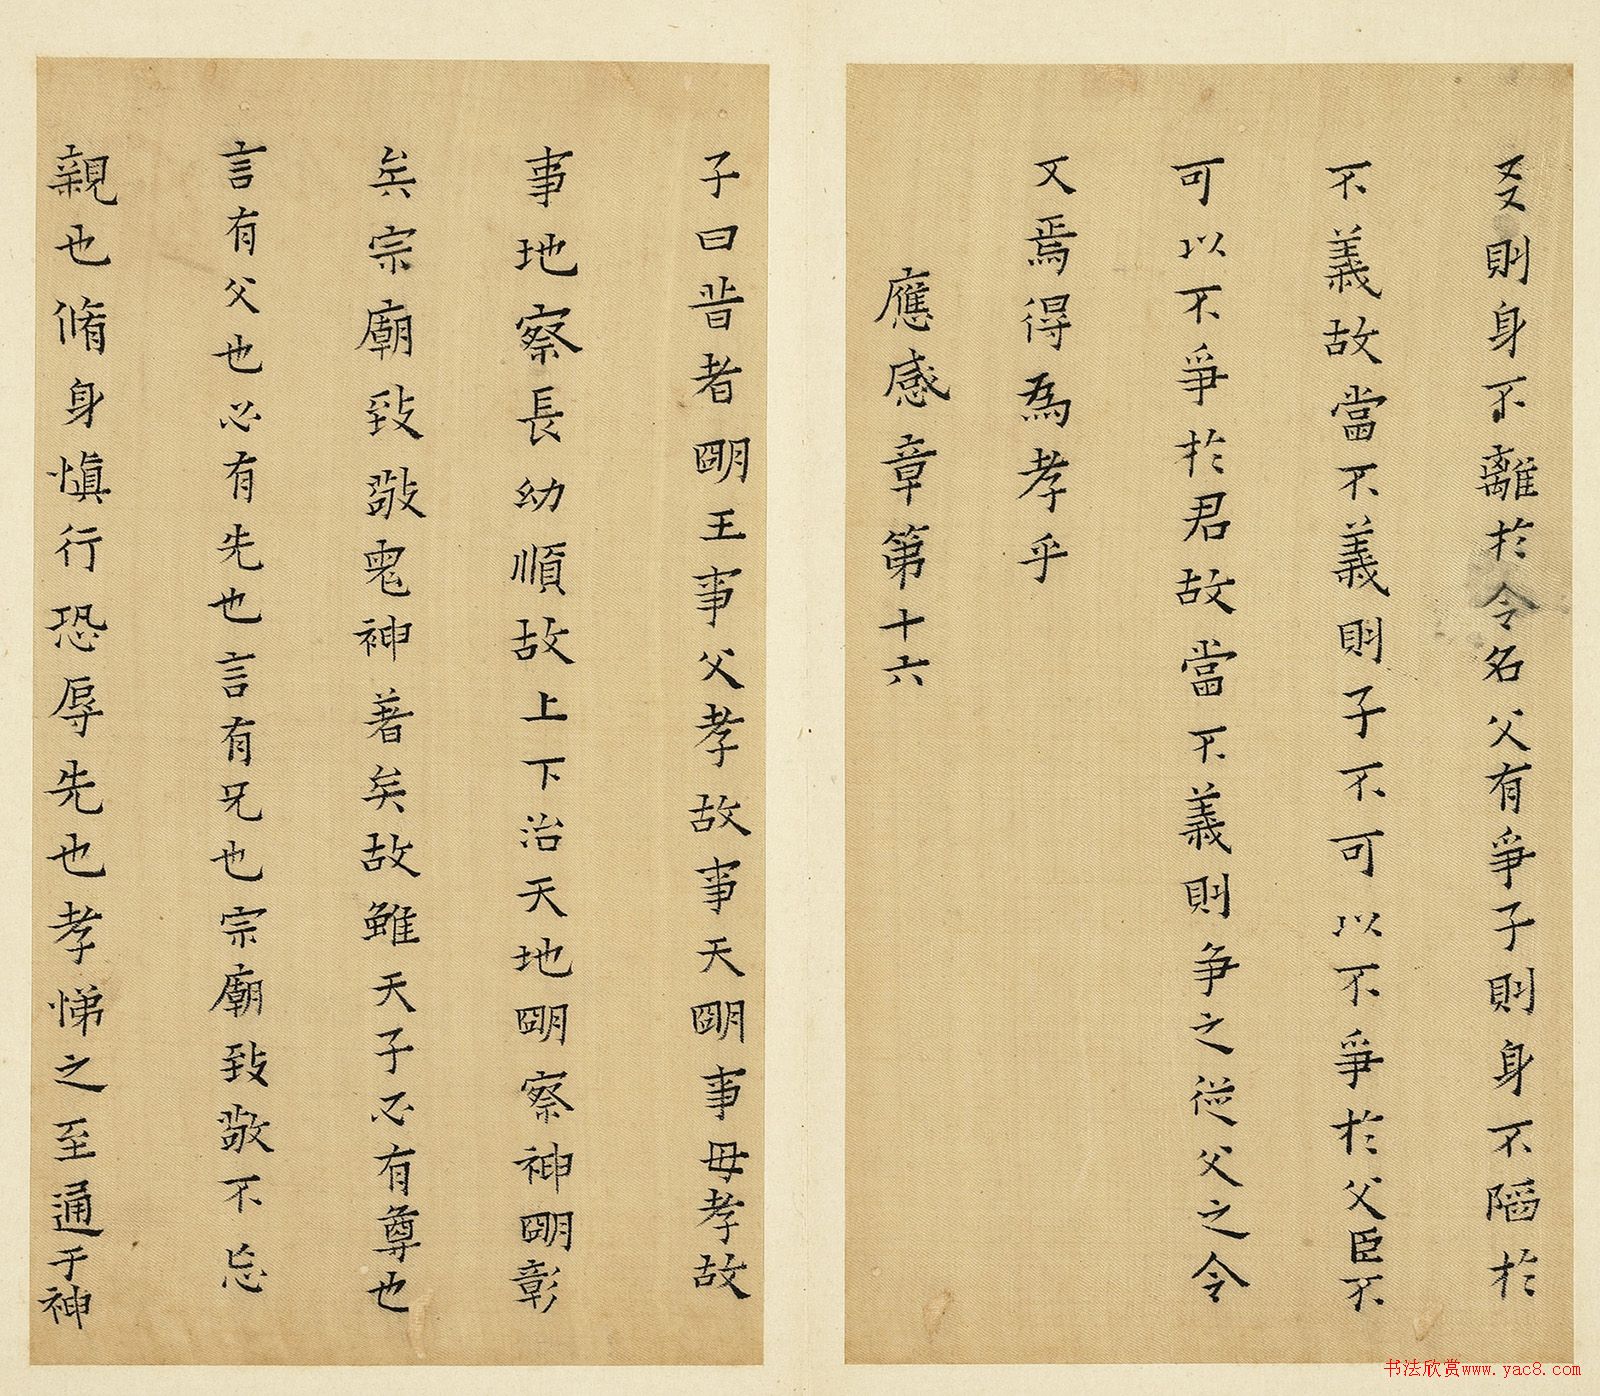 友則身不離於令名父有爭子則身不陷於
不義故當不義則子不可以不爭於父臣不
可以不爭於君故當不義則爭之從父之令
又焉得為孝乎
應感章第十六
子曰昔者朙王事父孝故事天朙事母孝故
事地察長幼順故上下治天地朙察神朙彰
矣宗廟致敬鬼神著矣故雖天子必有尊也
言有父也必有先也言有兄也宗廟致敬不忘
親也脩身慎行恐辱先也孝悌之至通于神
书法欣赏www.yac8.com